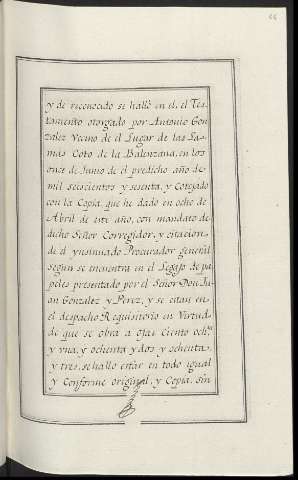 66
y de reconocido se halló en el, el Tes-
tamento otorgado por Antonio Gon
zalez Vecino de el Lugar de las La-
mas Coto de la Balenzana, en los
once de Junio de el predicho año de
mil seiscientos y sesenta, y Cotejado
con la Copia, que he dado en ocho de
Abril de este año, con mandato de
dicho Señor Corregidor, y citacion
de el ynsinuado Procurador general
segun se encuentra en el Legajo de pa
peles presentado por el Señor Don Ju
an Gonzalez y Perez, y se citan en
el despacho Requisitorio en Virtud
de que se obra a ojas Ciento och.ta
y vna, y ochenta y dos y ochenta,
y tres, se hallo estar en todo igual
y Conforme original, y Copia, sin